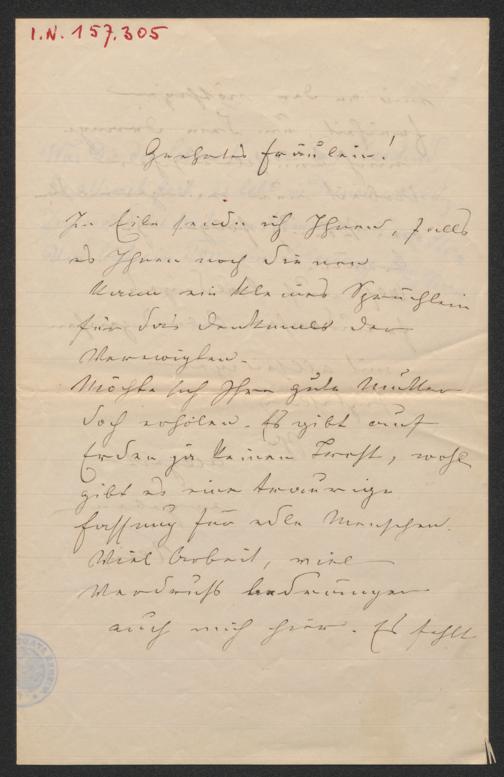 I.N. 157.305
Geehrtes Fräulein!
In Eile sende ich Ihnen, falls
es Ihnen noch dienen
kann ein kleines Sprüchlein
für das Denkmal der
Verewigten.
Möchte sich Ihre gute Mutter
doch erholen. Es gibt auf
Erden ja keinen Trost, wohl
gibt es eine traurige
Fassung für edle Menschen.
Viel Arbeit, viel
Verdruß bedrängen
auch mich hier. Es fehlt